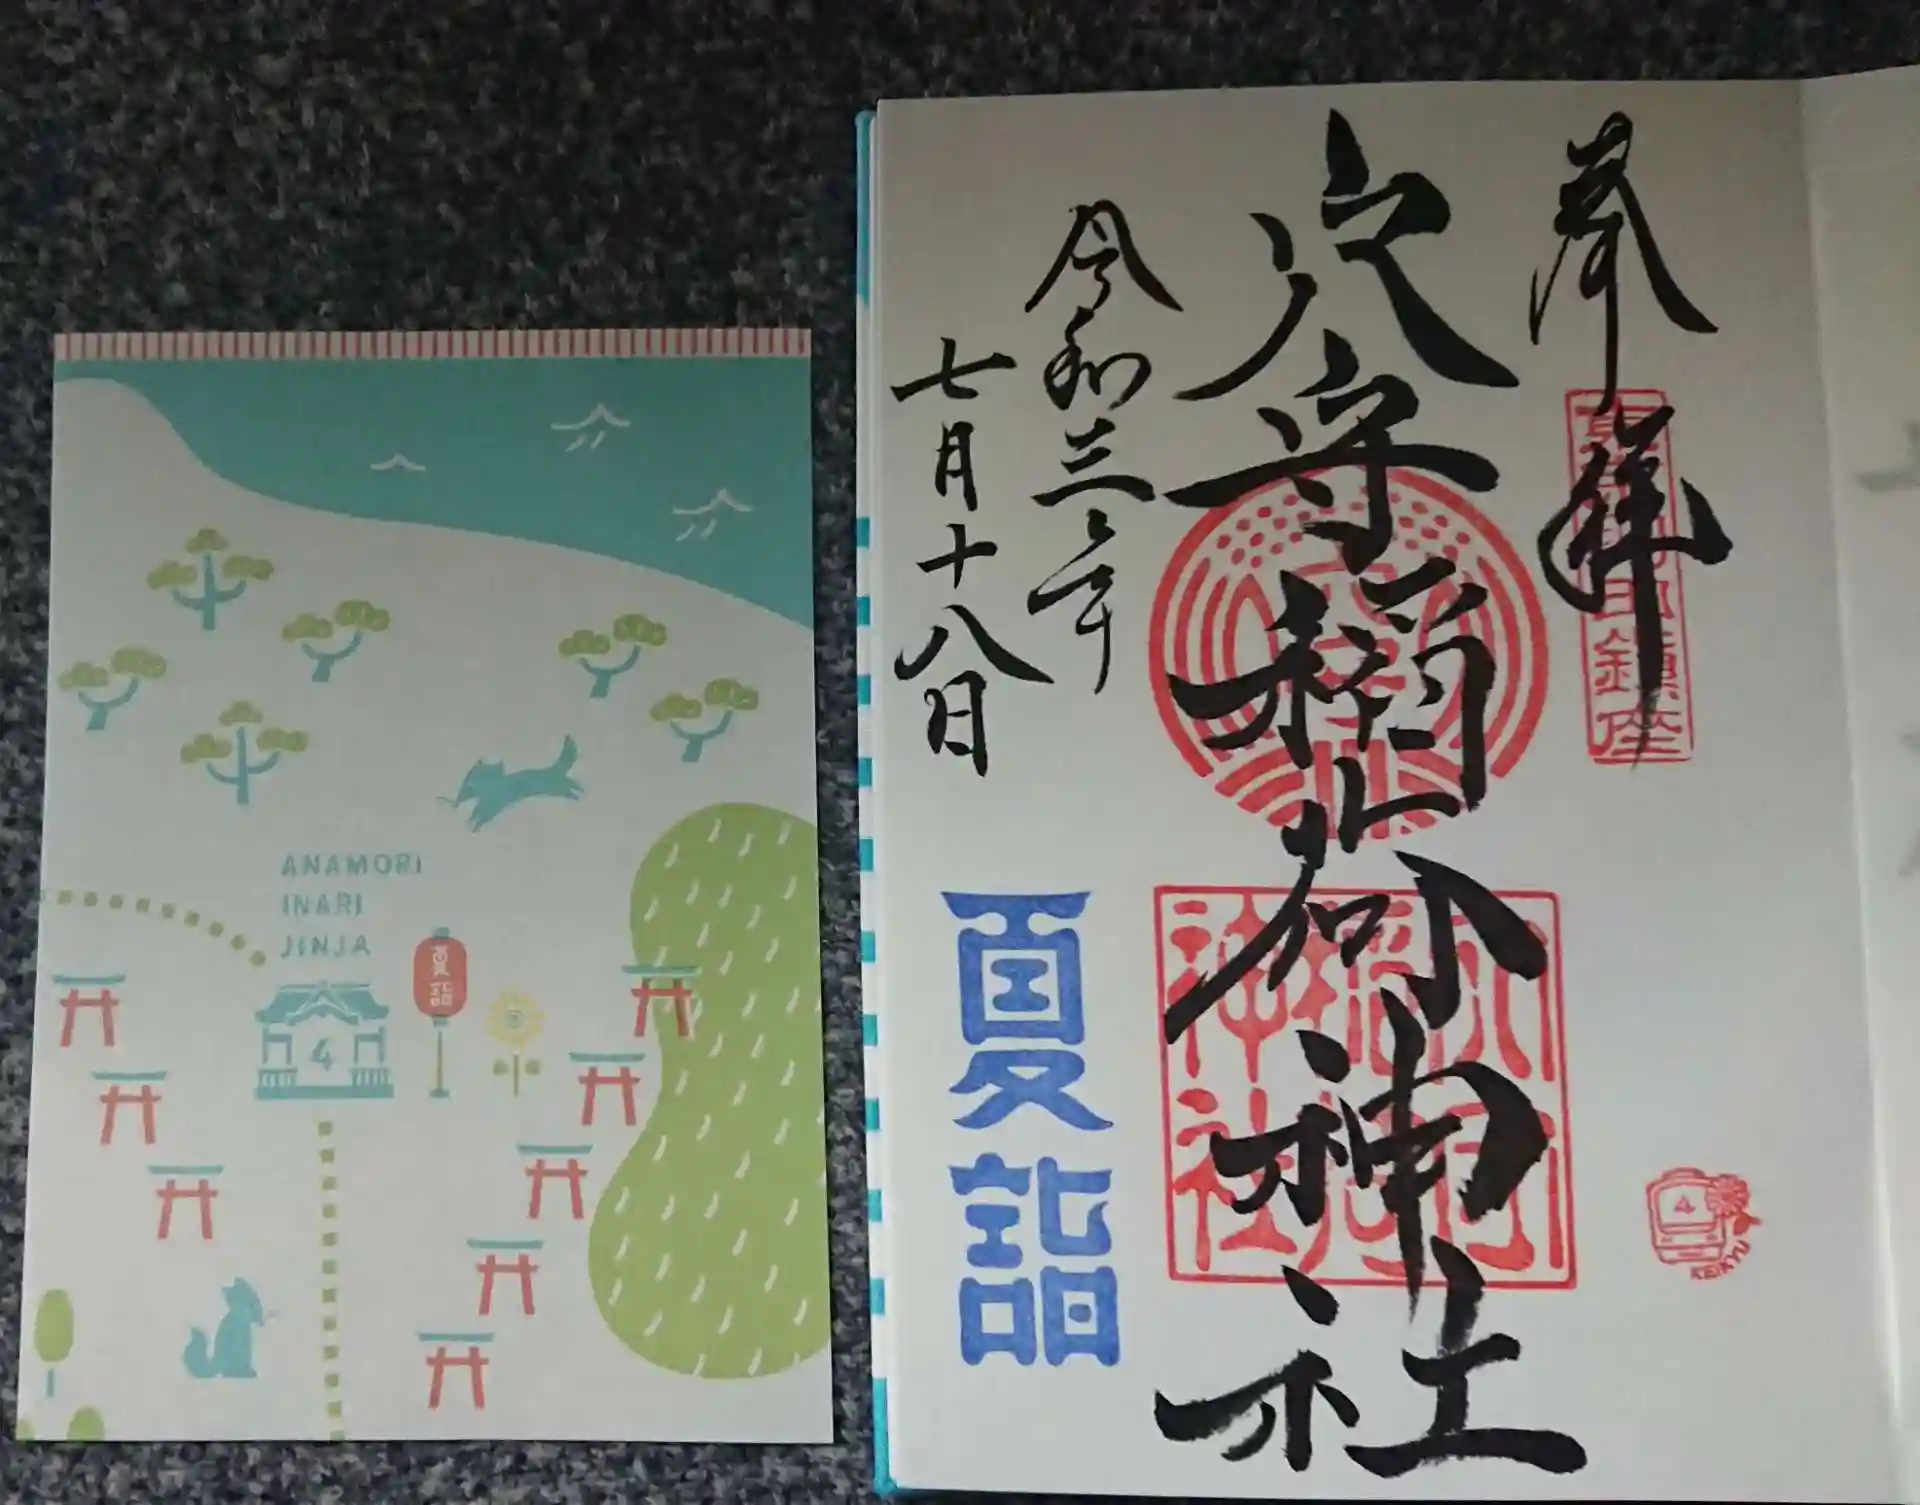 ANAMORI
INARI
JINJA
夏詣
4
奉拝
穴守稲荷神社
令和三年
七月十八日
夏詣
穴守稲荷神社
4
KEIKYU